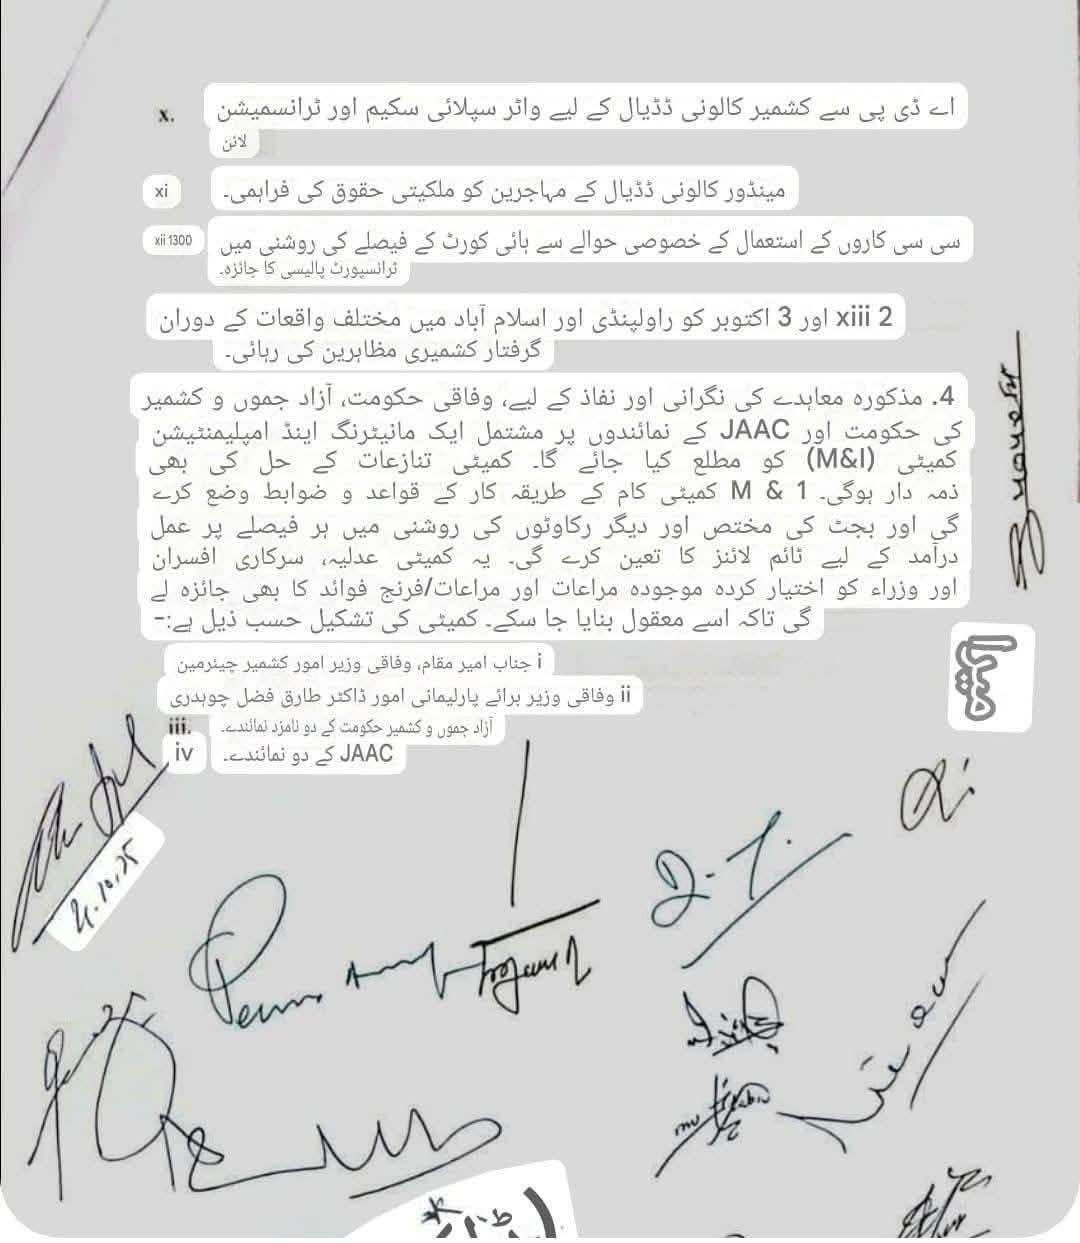 x. اے ڈی پی سے کشمیر کالونی ڈڈیال کے لیے واٹر سپلائی سکیم اور ٹرانسمیشن
لائن
xi مینڈور کالونی ڈڈیال کے مہاجرین کو ملکیتی حقوق کی فراہمی۔
xii 1300 سی سی کاروں کے استعمال کے خصوصی حوالے سے ہائی کورٹ کے فیصلے کی روشنی میں
ٹرانسپورٹ پالیسی کا جائزہ۔
xiii 2 اور 3 اکتوبر کو راولپنڈی اور اسلام آباد میں مختلف واقعات کے دوران
گرفتار کشمیری مظاہرین کی رہائی۔
4. مذکورہ معاہدے کی نگرانی اور نفاذ کے لیے، وفاقی حکومت، آزاد جموں و کشمیر
کی حکومت اور JAAC کے نمائندوں پر مشتمل ایک مانیٹرنگ اینڈ امپلیمنٹیشن
کمیٹی (M&I) کو مطلع کیا جائے گا۔ کمیٹی تنازعات کے حل کی بھی
ذمہ دار ہوگی۔ M & 1 کمیٹی کام کے طریقہ کار کے قواعد و ضوابط وضع کرے
گی اور بجٹ کی مختص اور دیگر رکاوٹوں کی روشنی میں ہر فیصلے پر عمل
درآمد کے لیے ٹائم لائنز کا تعین کرے گی۔ یہ کمیٹی عدلیہ، سرکاری افسران
اور وزراء کو اختیار کردہ موجودہ مراعات اور مراعات/فرنج فوائد کا بھی جائزہ لے
گی تاکہ اسے معقول بنایا جا سکے۔ کمیٹی کی تشکیل حسب ذیل ہے:-
i جناب امیر مقام، وفاقی وزیر امور کشمیر چیئرمین
ii وفاقی وزیر برائے پارلیمانی امور ڈاکٹر طارق فضل چوہدری
iii. آزاد جموں و کشمیر حکومت کے دو نامزد نمائندے۔
iv JAAC کے دو نمائندے۔
4.10.25